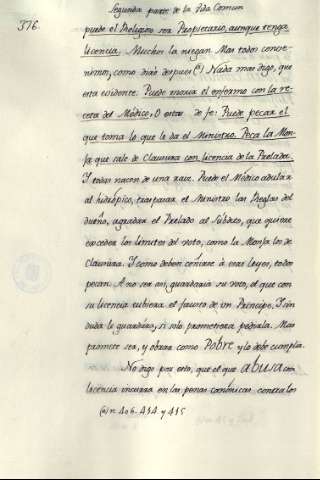 Segunda parte de la Vida Comun
376.
puede el Religioso ser Propietario, aunque tenga
licencia. Muchos la niegan. Mas todos conve-
nimos, como dirè despues (a) Nada mas digo, que
esta evidente. Puede morir el enfermo con la re-
ceta del Medico,
de fe: Puede pecar el
que toma lo que le da el Ministro. Peca la Mon-
ja que sale de Clausura con licencia de la Prelada.
Y todas nacen de una raiz. Puede el Medico adular
al hidrópico, traspasar el Ministro las Reglas del
dueño, agradar el Prelado al Subdito, que quiere
exceder los limites del voto, como la Monja los de
Clausura. Y como deben ceñirse à esas leyes, todos
pecan. A no ser asi, guardaria su voto, el que con
su licencia tubiera el fausto de un Principe. Y sin
duda le guardára, si solo prometiera pedirla. Mas
promete ser, y obrar como Pobre y lo debe cumplir.
No digo por esto, que el que abusa con
licencia incurra en las penas canónicas contra los
(a) n. 406. 434. y 435